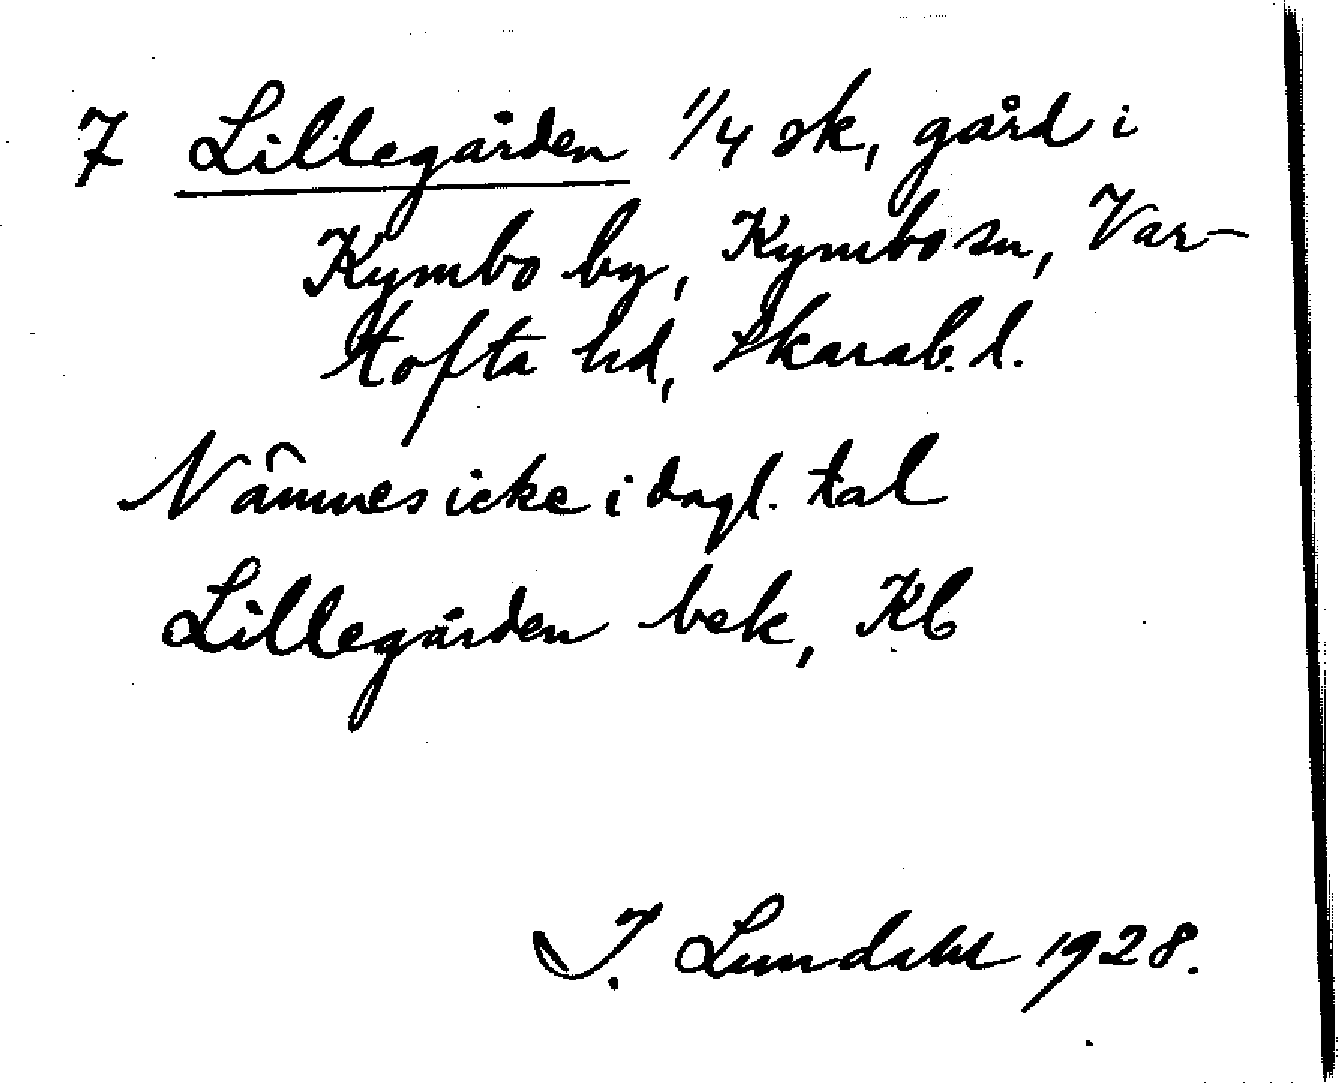 7 Lillegården 1/4 sk, gård i
Kymbo by, Kymbo sn, Var-
tofta hd, Skarab. l.
Nämnes icke i dagl. tal
Lillegården bek, Kb
J. Lundahl 1928.